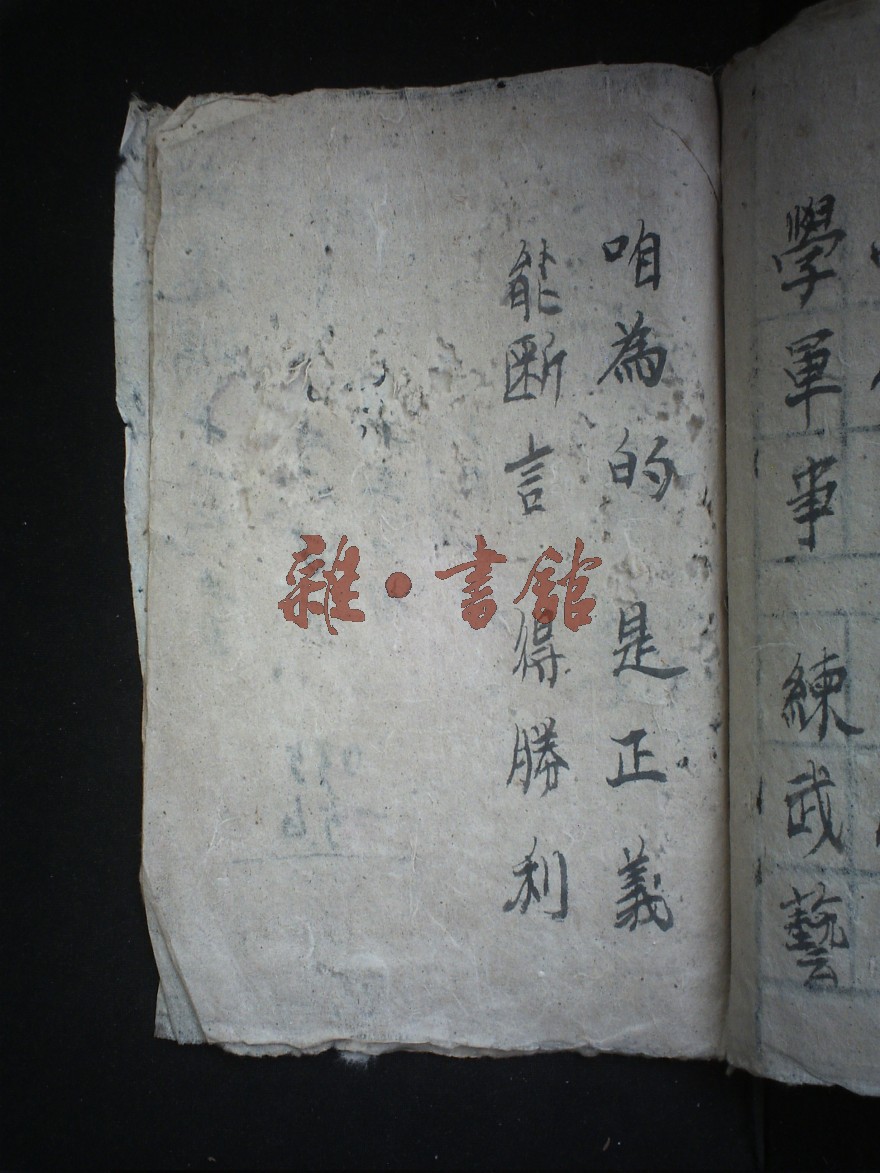 學軍事 練武藝
咱為的 是正義
能断言 得勝利
雜·書館